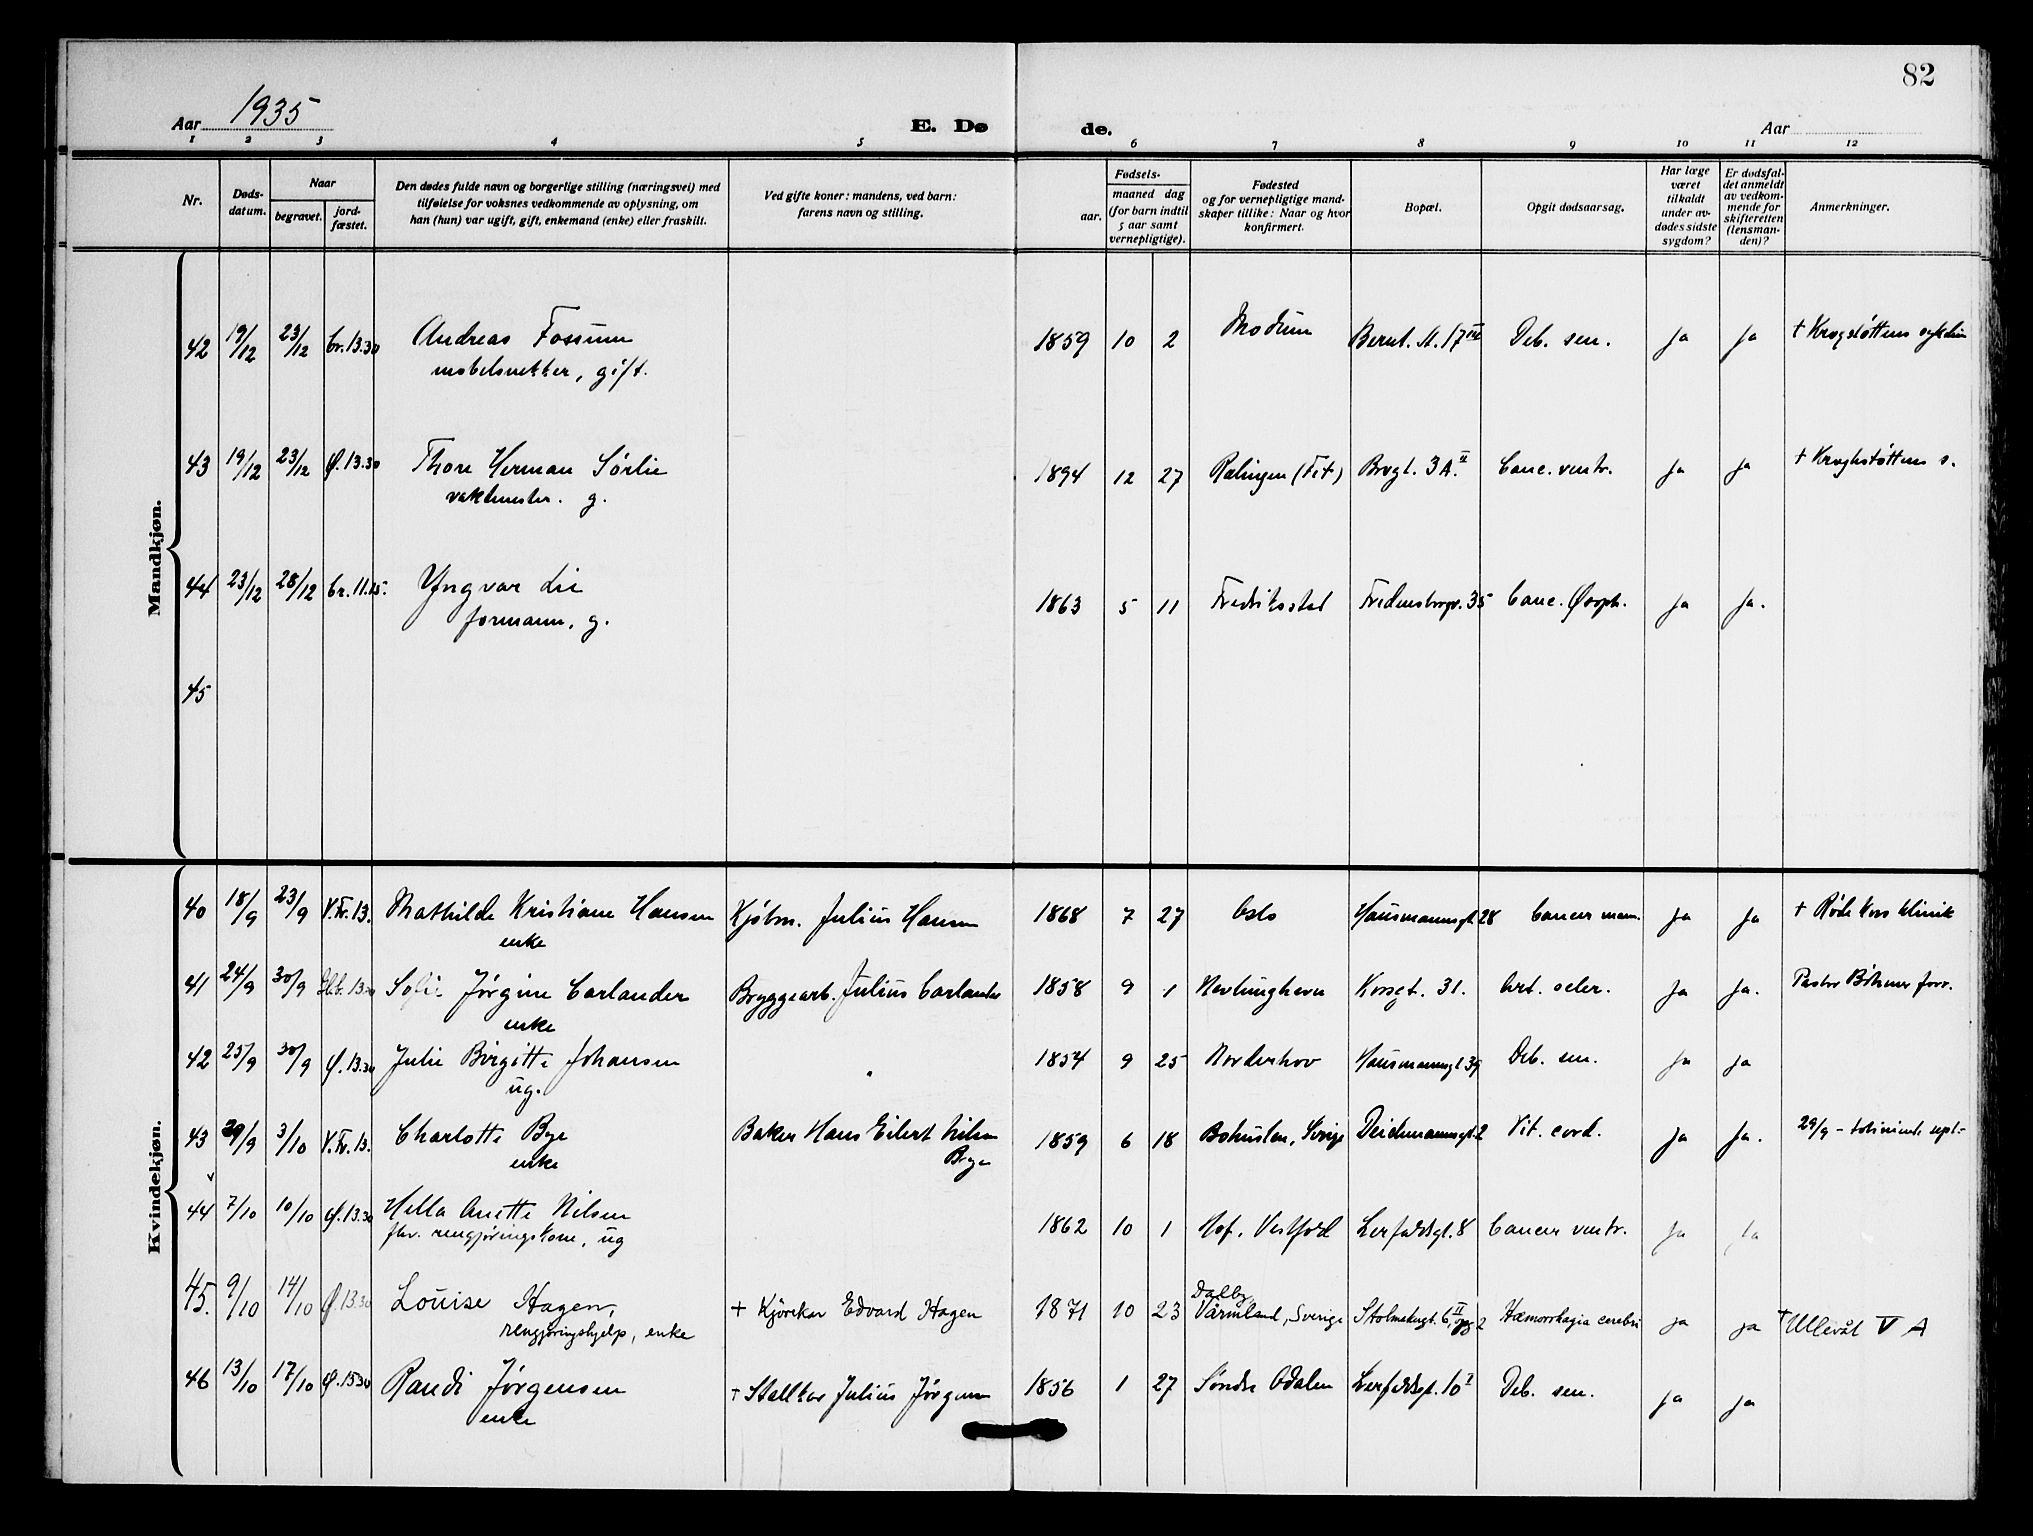 82
Aar 1935
E. Dø de.
Aar
1 2 3 4 5 6 7 8 9 10 11 12
Nr.
Døds-
datum.
Naar
begravet.
jord-
fæstet.
Den dødes fulde navn og borgerlige stilling (næringsvei) med
tilføielse for voksnes vedkommende av oplysning, om
han (hun) var ugift, gift, enkemand (enke) eller fraskilt.
Ved gifte koner: mandens, ved barn:
farens navn og stilling.
Fødsels-
aar.
maaned dag
(for barn indtil
5 aar samt
vernepligtige).
Fødested
og for vernepligtige mand-
skaper tillike: Naar og hvor
konfirmert.
Bopæl.
Opgit dødsaarsag.
Har læge
været
tilkaldt
under av-
dødes sidste
sygdom?
Er dødsfal-
det anmeldt
av vedkom-
mende for
skifteretten
(lensman-
den)?
Anmerkninger.
Mandkjøn.
42 19/12 23/12 Cr. 13.30 Andreas Fossum 1859 10 2 Modum Bernt. st. 17 Deb. sen. ja ja † Krogstøttens sykehus
møbelsnekker, gift.
43 19/12 23/12 Ø. 13.30 Thore Herman Sørlie 1894 12 27 Rælingen (Fet) Brogt. 3 A. II Canc. ventr. ja ja † Kroghstøttens s.
vaktmester. g.
44 23/12 28/12 Cr. 11.15. Yngvar Lie 1863 5 11 Fredriksstad Fredensborgv. 35 Canc. Øsoph. ja ja.
formann, g.
45
Kvindekjøn.
40 18/9 23/9 V.Fr. 13. Mathilde Kristiane Hansen Kjøbm. Julius Hansen 1868 7 27 Oslo Hausmannsgt. 28 Cancer mam. ja ja † Røde Kors Klinik
enke
41 24/9 30/9 13.00 Sofie Jørgine Carlander Bryggearb. Julius Carlander 1858 9 1 Nevlunghavn Korsgt. 31. Art. scler. ja ja. Pastor Bøhmer forr.
enke
42 25/9 30/9 Ø. 13.30 Julie Birgitte Johansen 1854 9 25 Norderhov Hausmannsgt 39 Deb. sen. ja ja
ug.
43 29/9 3/10 V.Fr. 13. Charlotte Bye Baker Hans Eilert Nilsen 1859 6 18 Bohuslen, Sverige Deichmannsgt. 2 Vit. cord. ja ja. 29/9 - tolvniende sept.-
enke Bye
44 7/10 10/10 Ø. 13.30 Hella Anette Nilsen 1862 10 1 Hof, Vestfold Lerfaldsgt. 8 Cancer ventr. ja ja
fhv. rengjøringskone, ug
45. 9/10 14/10 Ø 13.30 Louise Hagen, + Kjørekar Edvard Hagen 1871 10 23 Dalby, Värmland, Sverige Stolmakergt. 6, II Hæmorrhagia cerebri ja ja † Ullevål V A
rengjøringshjelp, enke
46 13/10 17/10 Ø. 15.30 Randi Jørgensen † Stallkar Julius Jørgensen 1856 1 27 Søndre Odalen Lerfaldsgt. 10 I Deb. sen. ja ja
enke